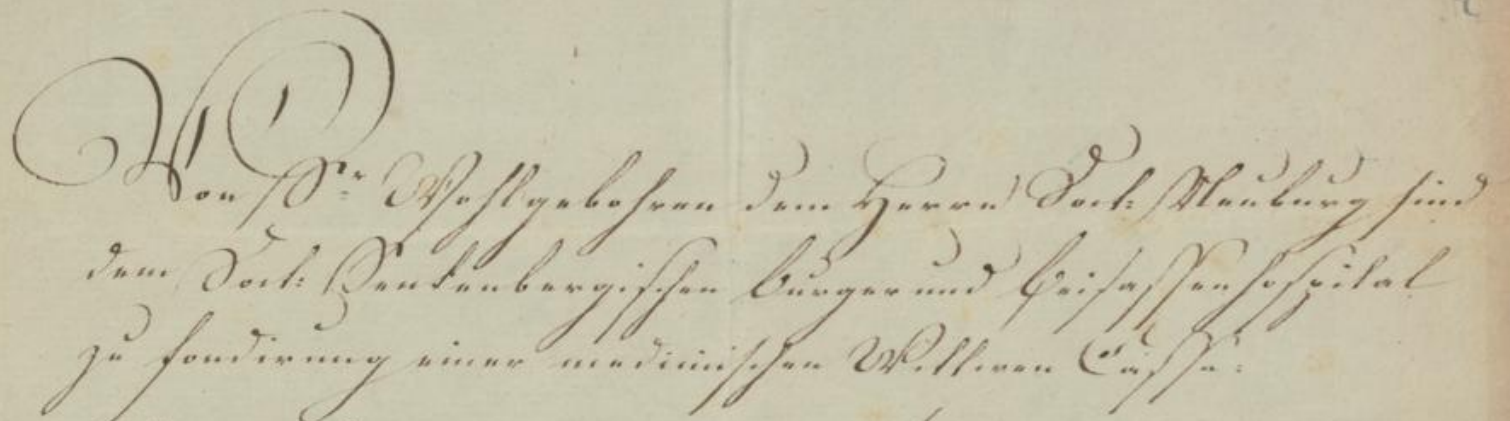 Von Sr. Wohlgebohren dem Herrn Doct: Neuburg sind
dem Doct: Senkenbergischen Burger und Beisassenhospital
zu fondirung einer medicinischen Wittwen Cassa: